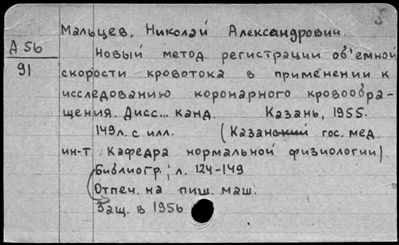 5
Мальцев, Николай Александрович.
А 56
91
Новый метод регистрации об'емной
скорости кровотока в применении к
исследованию коронарного кровообра-
щения. Дисс... канд. Казань, 1955.
149л. с илл. (Казанский гос. мед.
ин-т Кафедра нормальной физиологии)
Библиогр.; л. 124-149
Отпеч. на пиш. маш.
Защ. в 1956